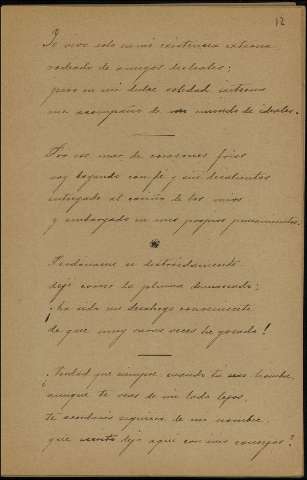 12
Yo vivo solo en mi existencia extraña
rodeado de amigos desleales;
pero en mi dulce soledad interna
me acompaña de un mundo de ideales.
Por ese mar de corazones fríos
voy bogando con fe y sin desalientos
entregado al cariño de los míos
y embargado en mis propios pensamientos.
Perdóname si distraídamente
dejé correr la pluma demasiado;
¡ha sido un desahogo conveniente
de que muy raras veces he gozado!
¿Verdad que siempre, cuando tú me nombres,
aunque te veas de mi lado lejos,
te acordarás siquiera de mi nombre,
que dejo aquí con mis consejos?